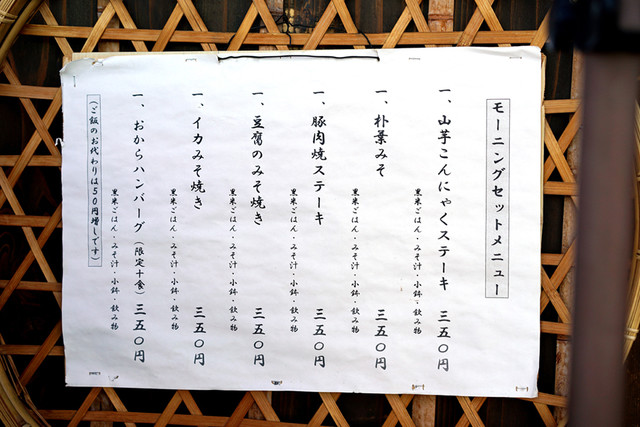 モーニングセットメニュー
一、山芋こんにゃくステーキ 三五〇円
黒米ごはん・みそ汁・小鉢・飲み物
一、朴葉みそ 三五〇円
黒米ごはん・みそ汁・小鉢・飲み物
一、豚肉焼ステーキ 三五〇円
黒米ごはん・みそ汁・小鉢・飲み物
一、豆腐のみそ焼き 三五〇円
黒米ごはん・みそ汁・小鉢・飲み物
一、イカみそ焼き 三五〇円
黒米ごはん・みそ汁・小鉢・飲み物
一、おからハンバーグ(限定十食)三五〇円
黒米ごはん・みそ汁・小鉢・飲み物
(ご飯のお代わりは50円増しです)